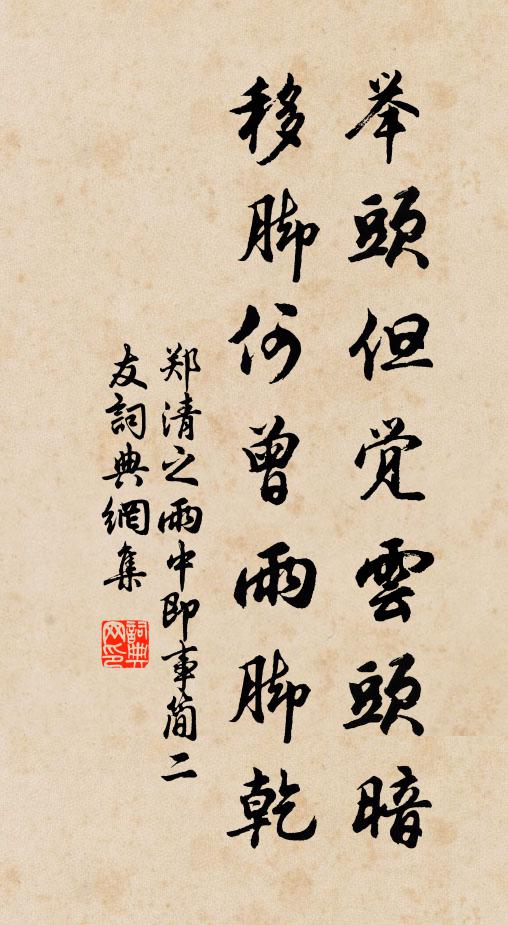 举頭但觉雲頭暗
移脚何曾雨脚乾
郑清之雨中即事简二
友詞典網集
詞典网印